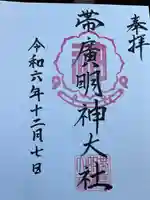 奉拝
帯廣明神大社
令和六年十二月七日